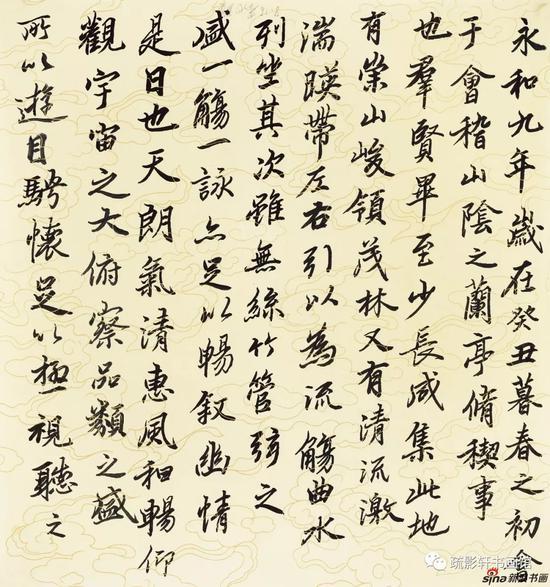 永和九年歲在癸丑暮春之初會
于會稽山陰之蘭亭脩稧事
也羣賢畢至少長咸集此地
有崇山峻領茂林又有清流激
湍暎帶左右引以為流觴曲水
列坐其次雖無絲竹管弦之
盛一觴一詠亦足以暢叙幽情
是日也天朗氣清惠風和暢仰
觀宇宙之大俯察品類之盛
所以遊目騁懷足以極視聽之
疏影轩书画馆
sina新浪书画